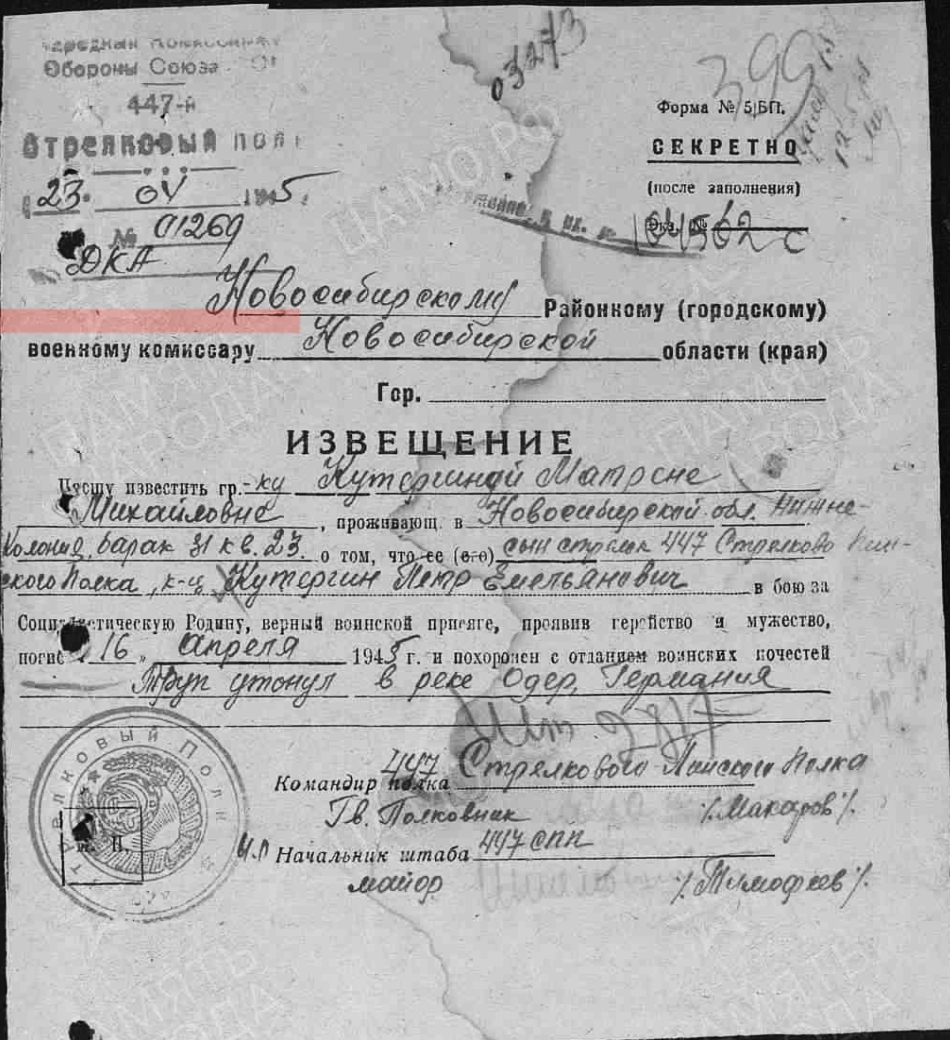 Народный Комиссариат
Обороны Союза
447-й
Стрелковый полк
23. 04 1945 г.
№ 01269
ДКА
03273
399
Форма № 5/БП.
СЕКРЕТНО
(после заполнения)
Экз. №
104562 с
Новосибирскому Районному (городскому)
военному комиссару Новосибирской области (края)
Гор.
ИЗВЕЩЕНИЕ
Прошу известить гр.-ку Кутергиной Матроне
Михайловне, проживающ. в Новосибирской обл. Нижне-
Колония, барак 31 кв. 23. о том, что ее (его) сын стрелок 447 Стрелково Пин-
ского Полка, к-ц Кутергин Петр Емельянович в бою за
Социалистическую Родину, верный воинской присяге, проявив геройство и мужество,
погиб „16„ Апреля 1945 г. и похоронен с отданием воинских почестей
Труп утонул в реке Одер, Германия
Командир 447 полка Стрелкового Пинского Полка
Гв. Полковник /Макаров/.
И.П Начальник штаба 447 СПП
майор /Тимофеев/.
Стрелковый Полк
М. П.
ПАМЯТЬ НАРОДА
ЦАМО РФ